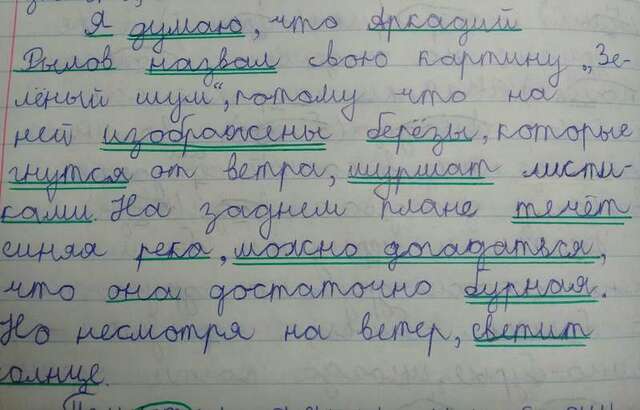 Я думаю, что Аркадий
Рылов назвал свою картину „Зе-
лёный шум“, потому что на
ней изображены берёзы, которые
гнутся от ветра, шуршат листи-
ками. На заднем плане течёт
синяя река, можно догадаться,
что она достаточно бурная.
Но несмотря на ветер, светит
солнце.